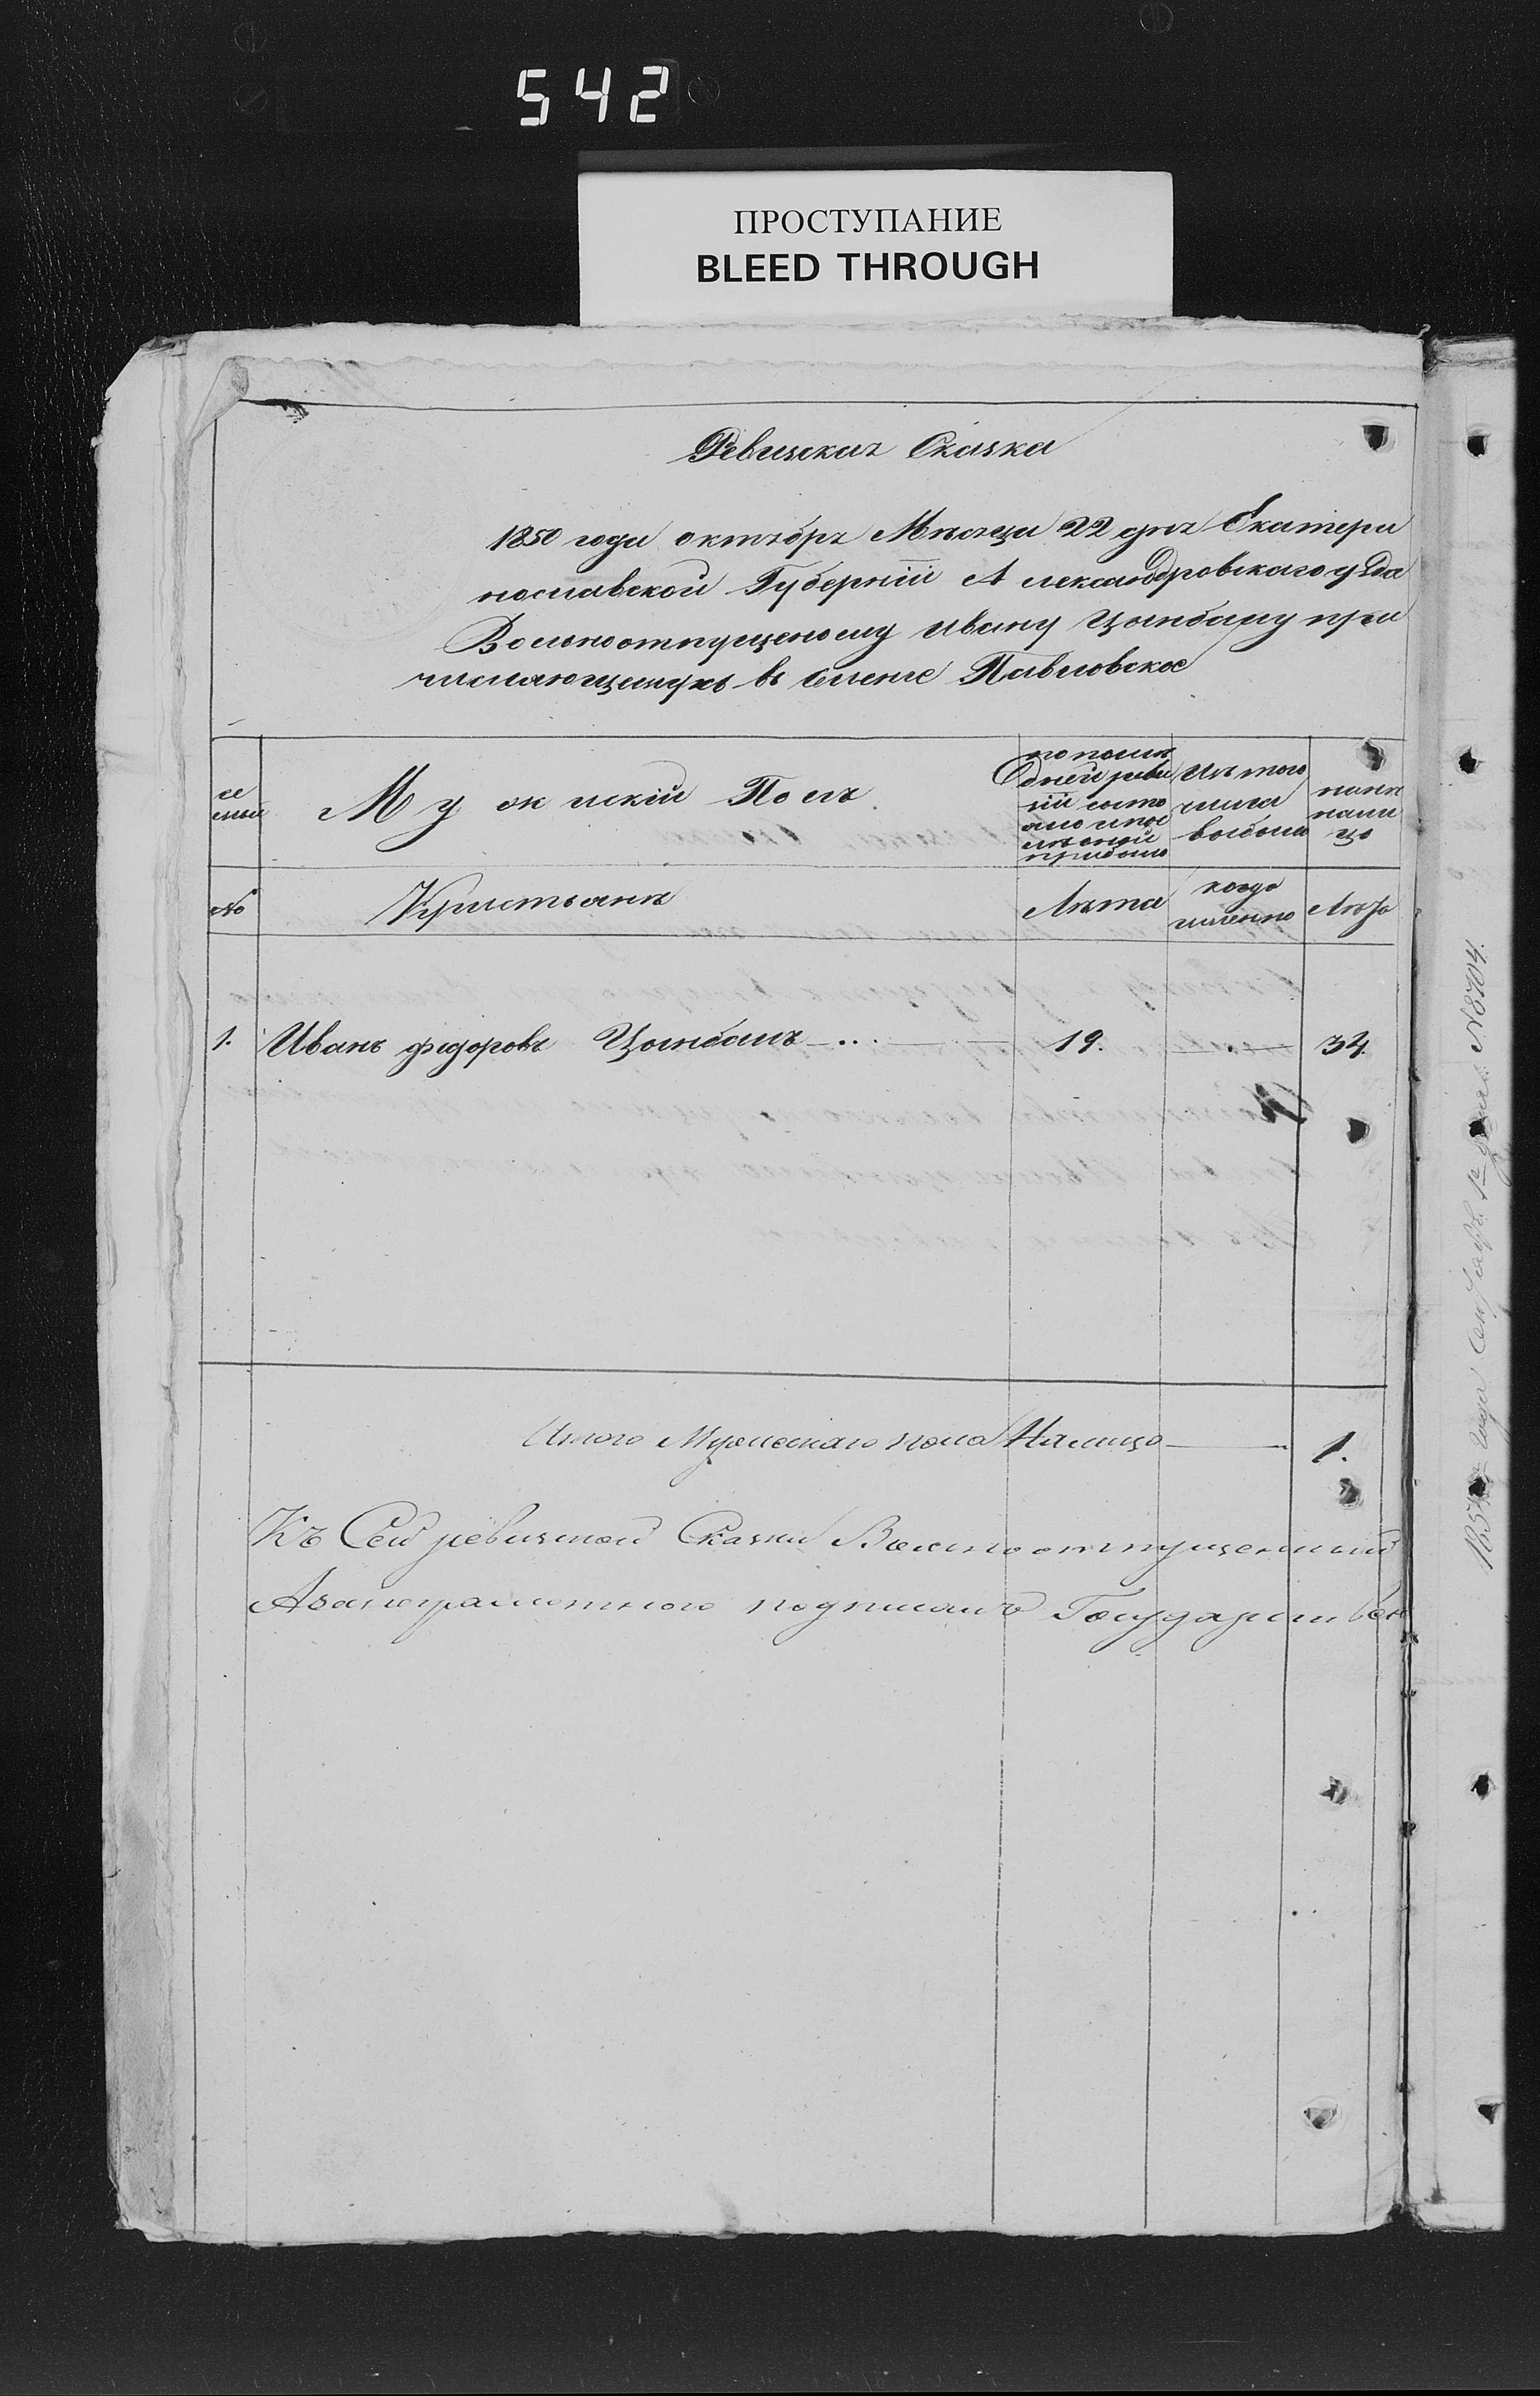 542
ПРОСТУПАНИЕ
BLEED THROUGH
Ревизская Сказка
1850 года октября Мѣсяца 22 дня Екатери
нославской Губерніи Александровскаго уѣзда
Вольноотпущеному ивану Цымбалу при
числяющемуся в именіе Павловское
се
мьи
Мужискій Полъ
по послѣ
дней реви
зіи состо
яло и пос
лѣ оной
прибыло
Изъ того
числа
выбыло
нынѣ
нали
цо
№
Кристьянѣ
Лѣта
когда
именно
Лѣта
1. Иванъ Федоровъ Цымбалъ 19. 34.
Итого Мужескаго пола Налицо 1.
Къ Сей ревизской Сказки Вольноотпущенный
А за неграмотного подписалъ Государствен
185 года Сентября 1го дня № 8704.